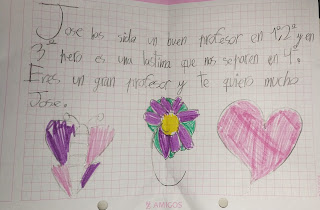 Jose has sido un buen profesor en 1º,2º y en
3º pero es una lastima que nos separen en 4º.
Eres un gran profesor y te quiero mucho
Jose.
AMIGOS